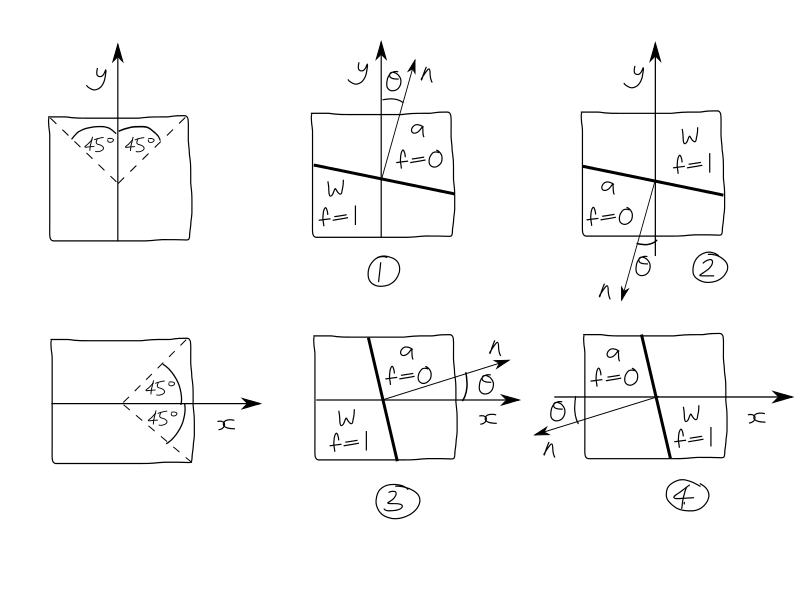 y
45° 45°
y
θ
n
a
f=0
W
f=1
1
y
W
f=1
a
f=0
θ
n
2
45°
45°
x
a
f=0
n
θ
x
W
f=1
3
a
f=0
θ
n
W
f=1
x
4